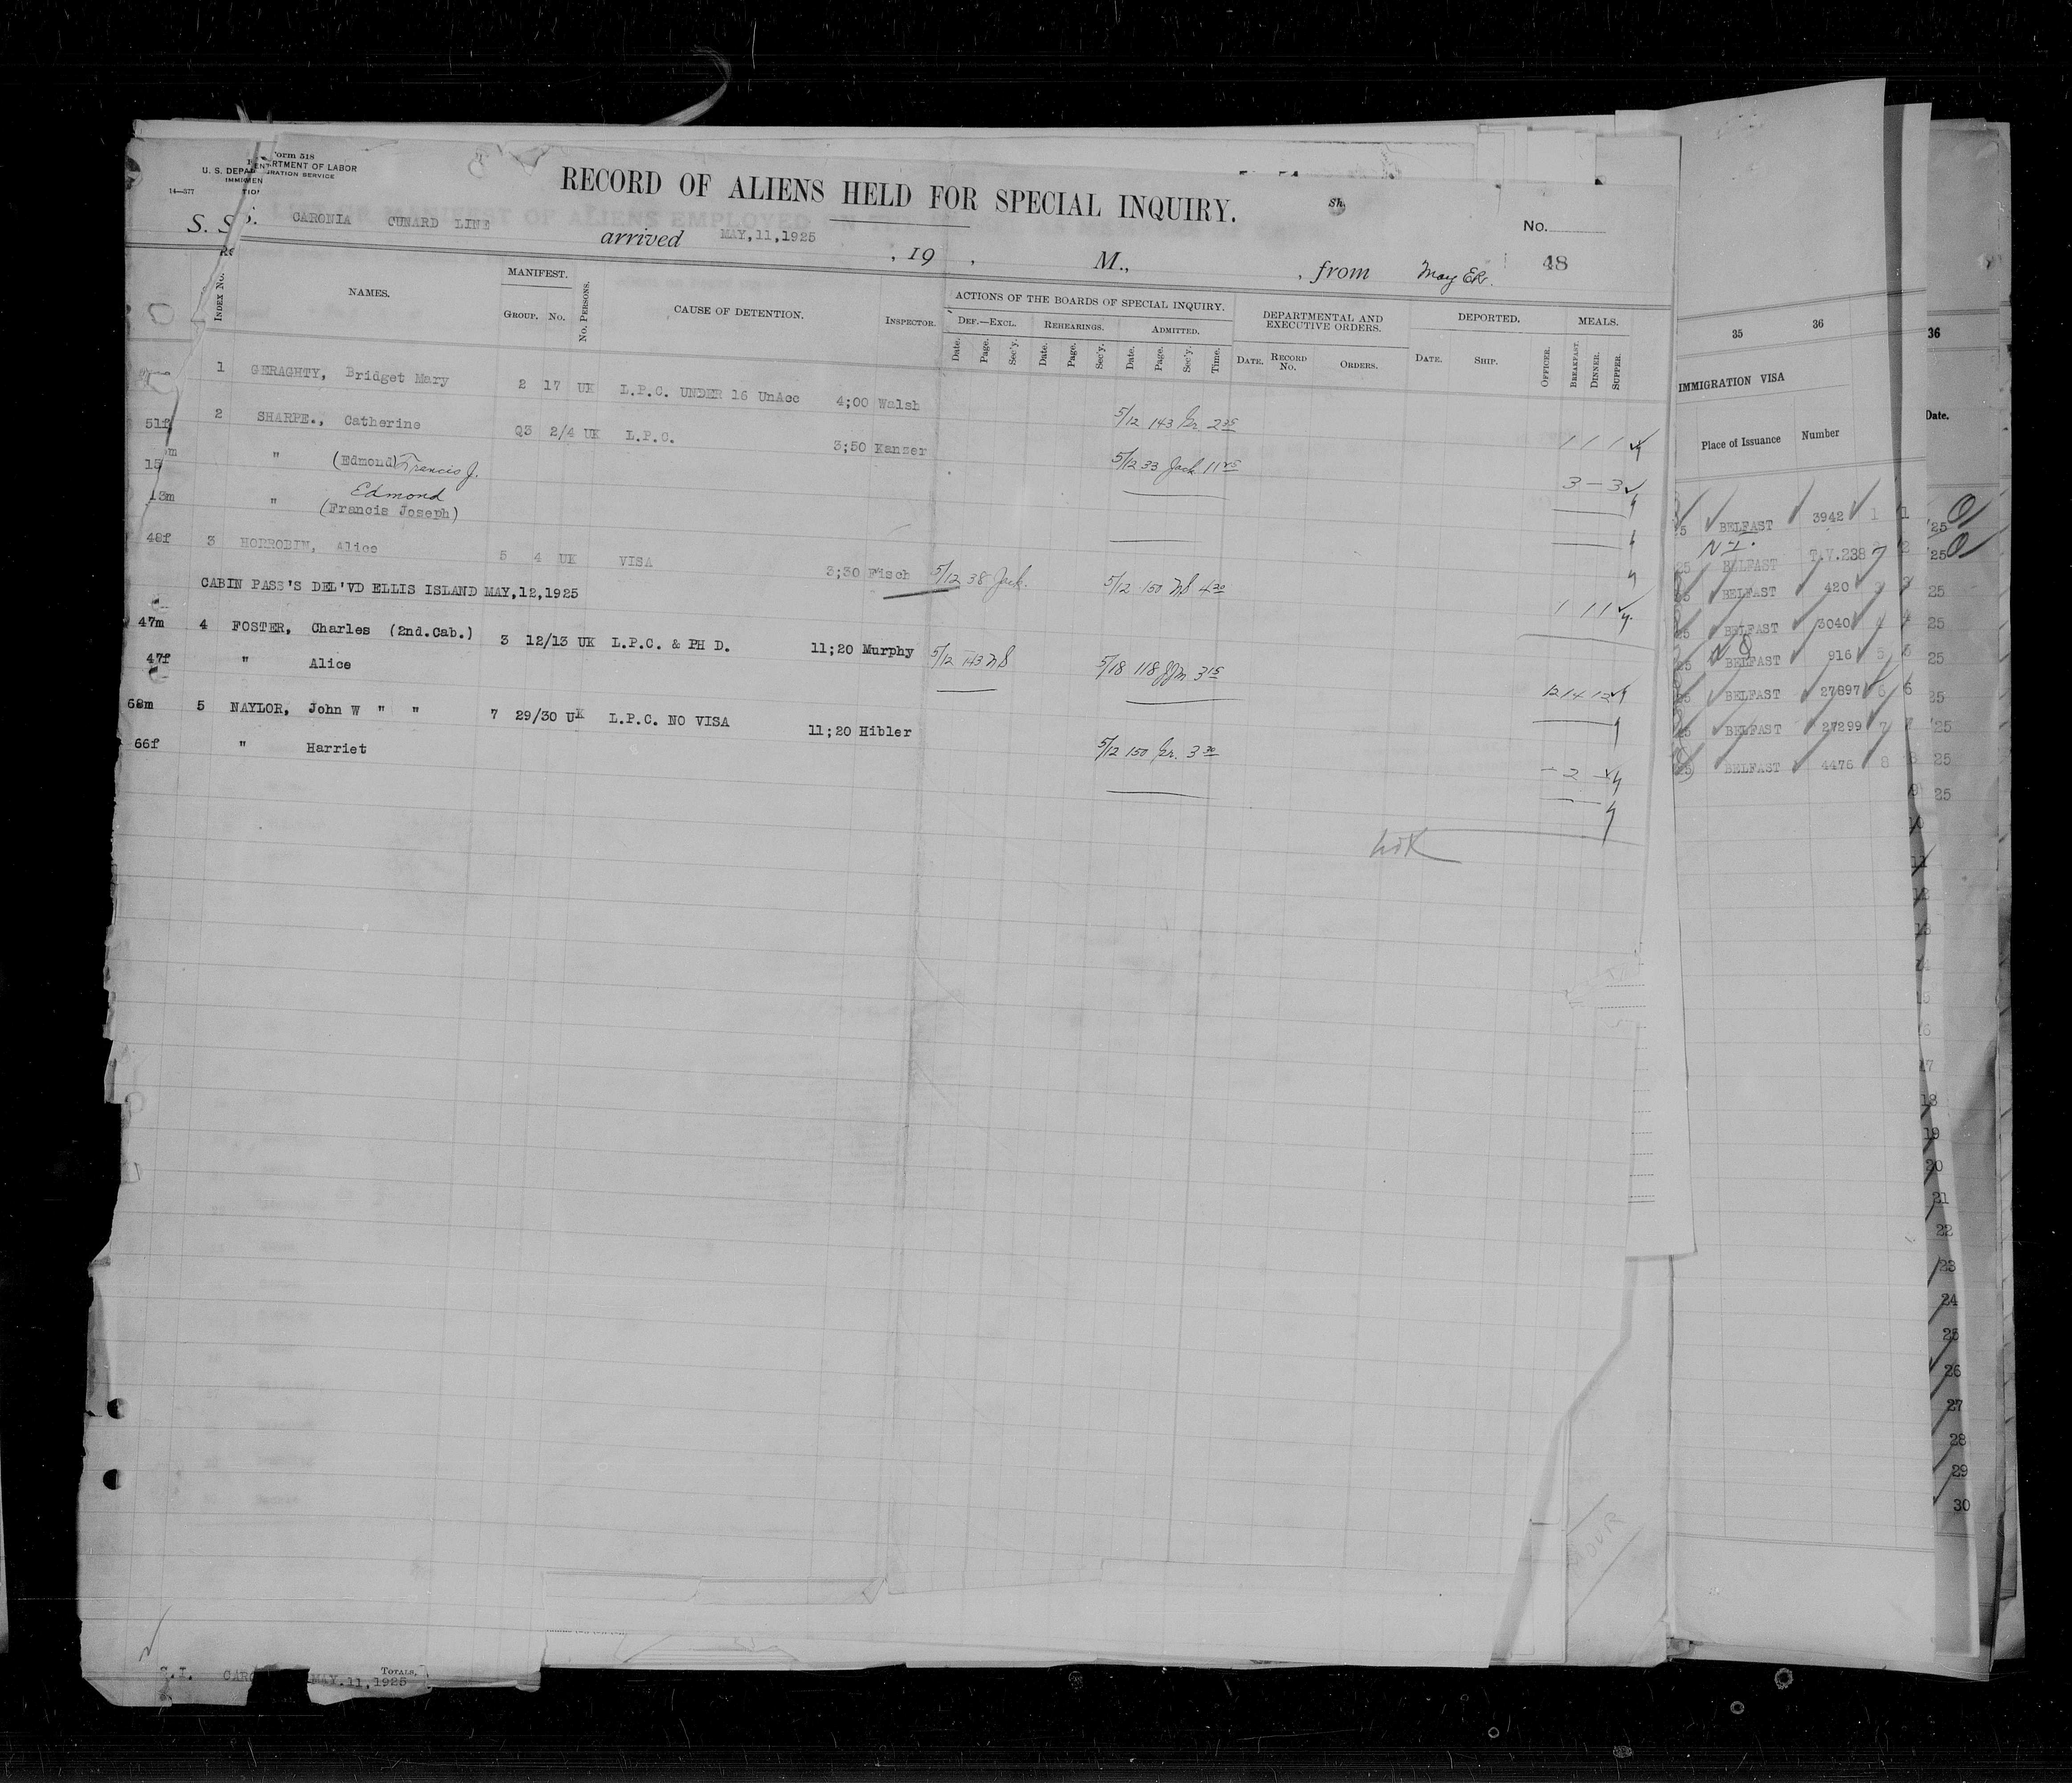 Form 518
U. S. DEPARTMENT OF LABOR
IMMIGRATION SERVICE
14—377
RECORD OF ALIENS HELD FOR SPECIAL INQUIRY.
Sh.
S. S. CARONIA CUNARD LINE arrived MAY,11,1925 , 19 , M., , from May ER. No. 48
INDEX No. NAMES. MANIFEST. GROUP. No. No. PERSONS. CAUSE OF DETENTION. INSPECTOR.
ACTIONS OF THE BOARDS OF SPECIAL INQUIRY. DEPARTMENTAL AND EXECUTIVE ORDERS. DEPORTED. MEALS.
DEF.—EXCL. REHEARINGS. ADMITTED.
Date. Page. Sec'y. Date. Page. Sec'y. Date. Page. Sec'y. Time. DATE. RECORD No. ORDERS. DATE. SHIP. OFFICER. BREAKFAST. DINNER. SUPPER.
1 GERAGHTY, Bridget Mary 2 17 UK L.P.C. UNDER 16 UnAcc 4;00 Walsh 5/12 143 Gr. 2 35 1 1 1
51f 2 SHARPE., Catherine Q3 2/4 UK L.P.C. 3;50 Kanzer 5/12 33 Jack 11 45 3 — 3
15m " (Edmond) Francis J.
13m " Edmond (Francis Joseph)
48f 3 HORROBIN, Alice 5 4 UK VISA 3;30 Fisch 5/12 38 Jack. 5/12 150 NS 4 20 1 1 1
CABIN PASS'S DEL'VD ELLIS ISLAND MAY,12,1925
47m 4 FOSTER, Charles (2nd.Cab.) 3 12/13 UK L.P.C. & PH D. 11;20 Murphy 5/12 143 NS 5/18 118 3 15 12 14 12
47f " Alice
68m 5 NAYLOR, John W " " 7 29/30 UK L.P.C. NO VISA 11;20 Hibler 5/12 150 Gr. 3 30 — 2 —
66f " Harriet
TOTALS,
S.I. CARO MAY.11,1925
35 36
IMMIGRATION VISA
Place of Issuance Number
BELFAST 3942 1
N I.
BELFAST T.V.238 2
BELFAST 420 3
BELFAST 3040 4
BELFAST 916 5
BELFAST 27897 6
BELFAST 27299 7
BELFAST 4476 8
36
Date.
'25
'25
25
25
25
25
'25
25
25
18
19
20
21
22
23
24
25
26
27
28
29
30